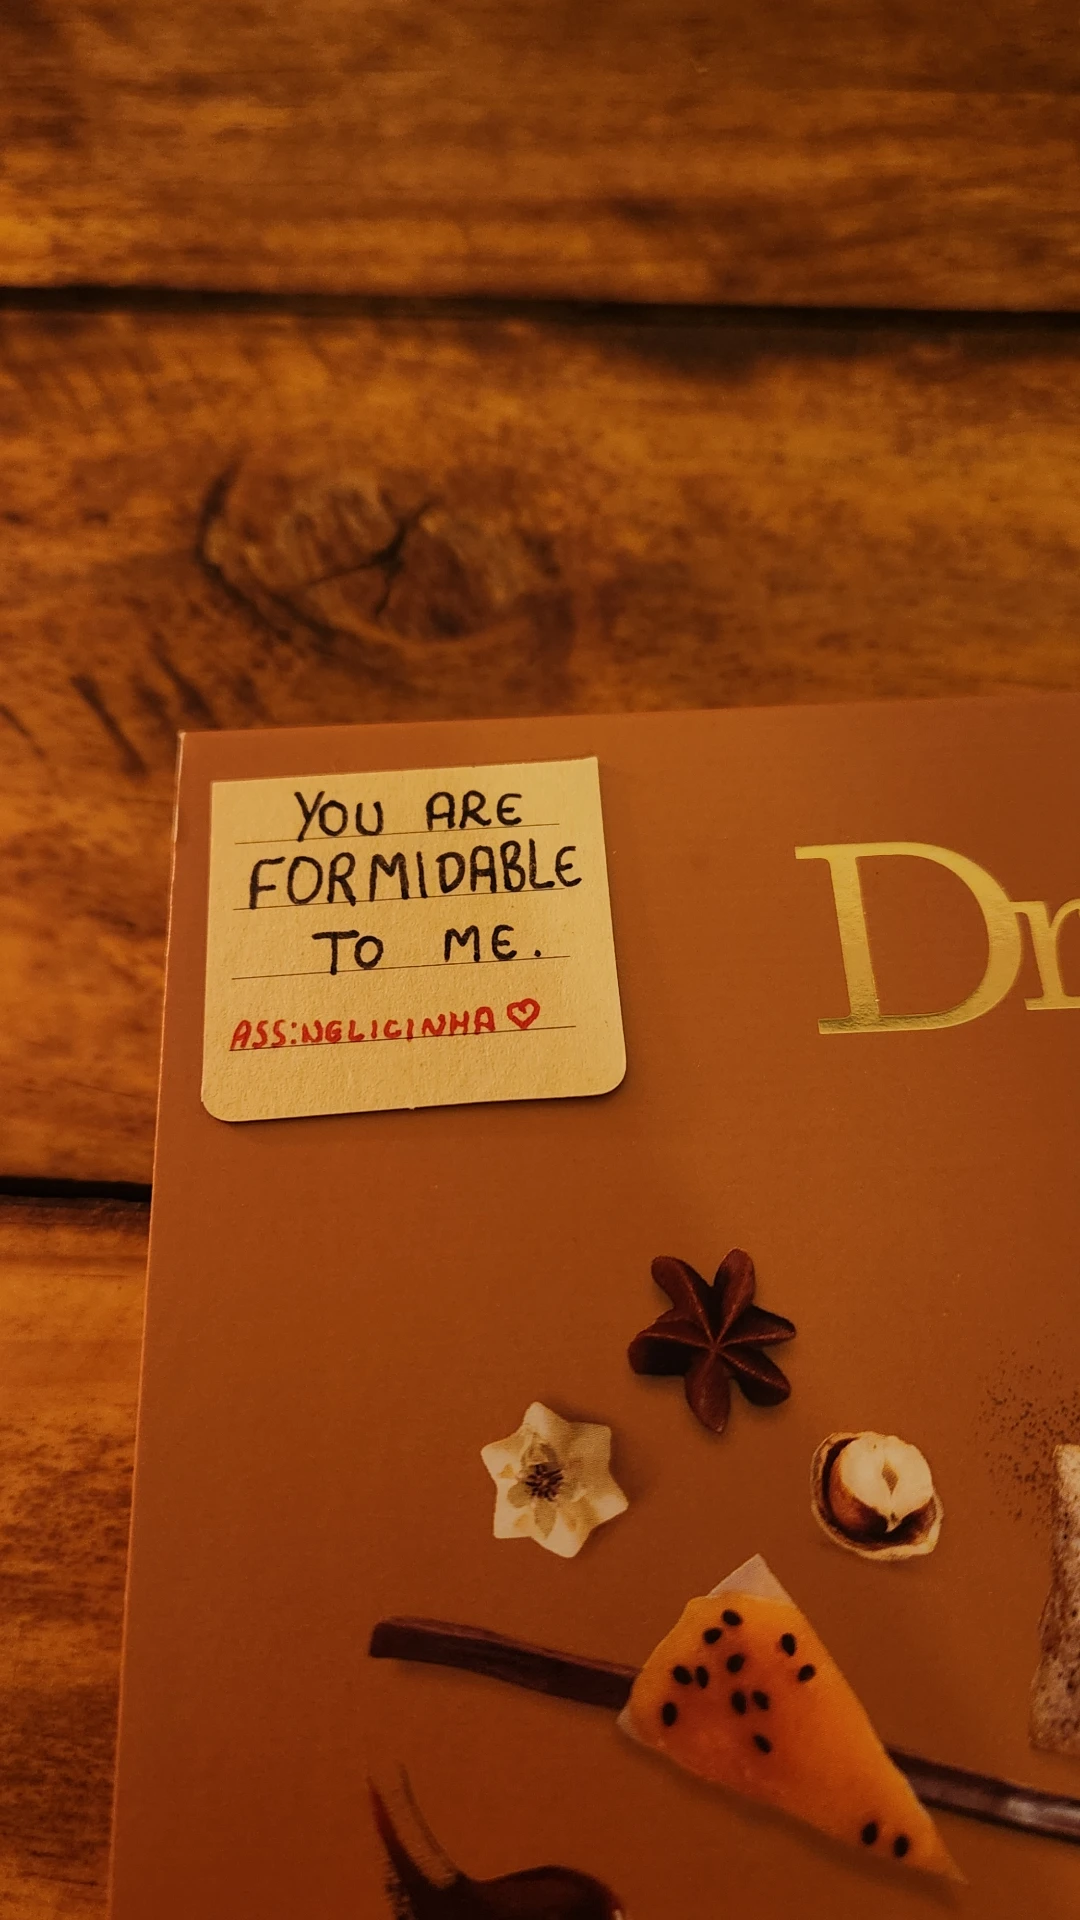 YOU ARE
FORMIDABLE
TO ME.
ASS:NELICINHA♡